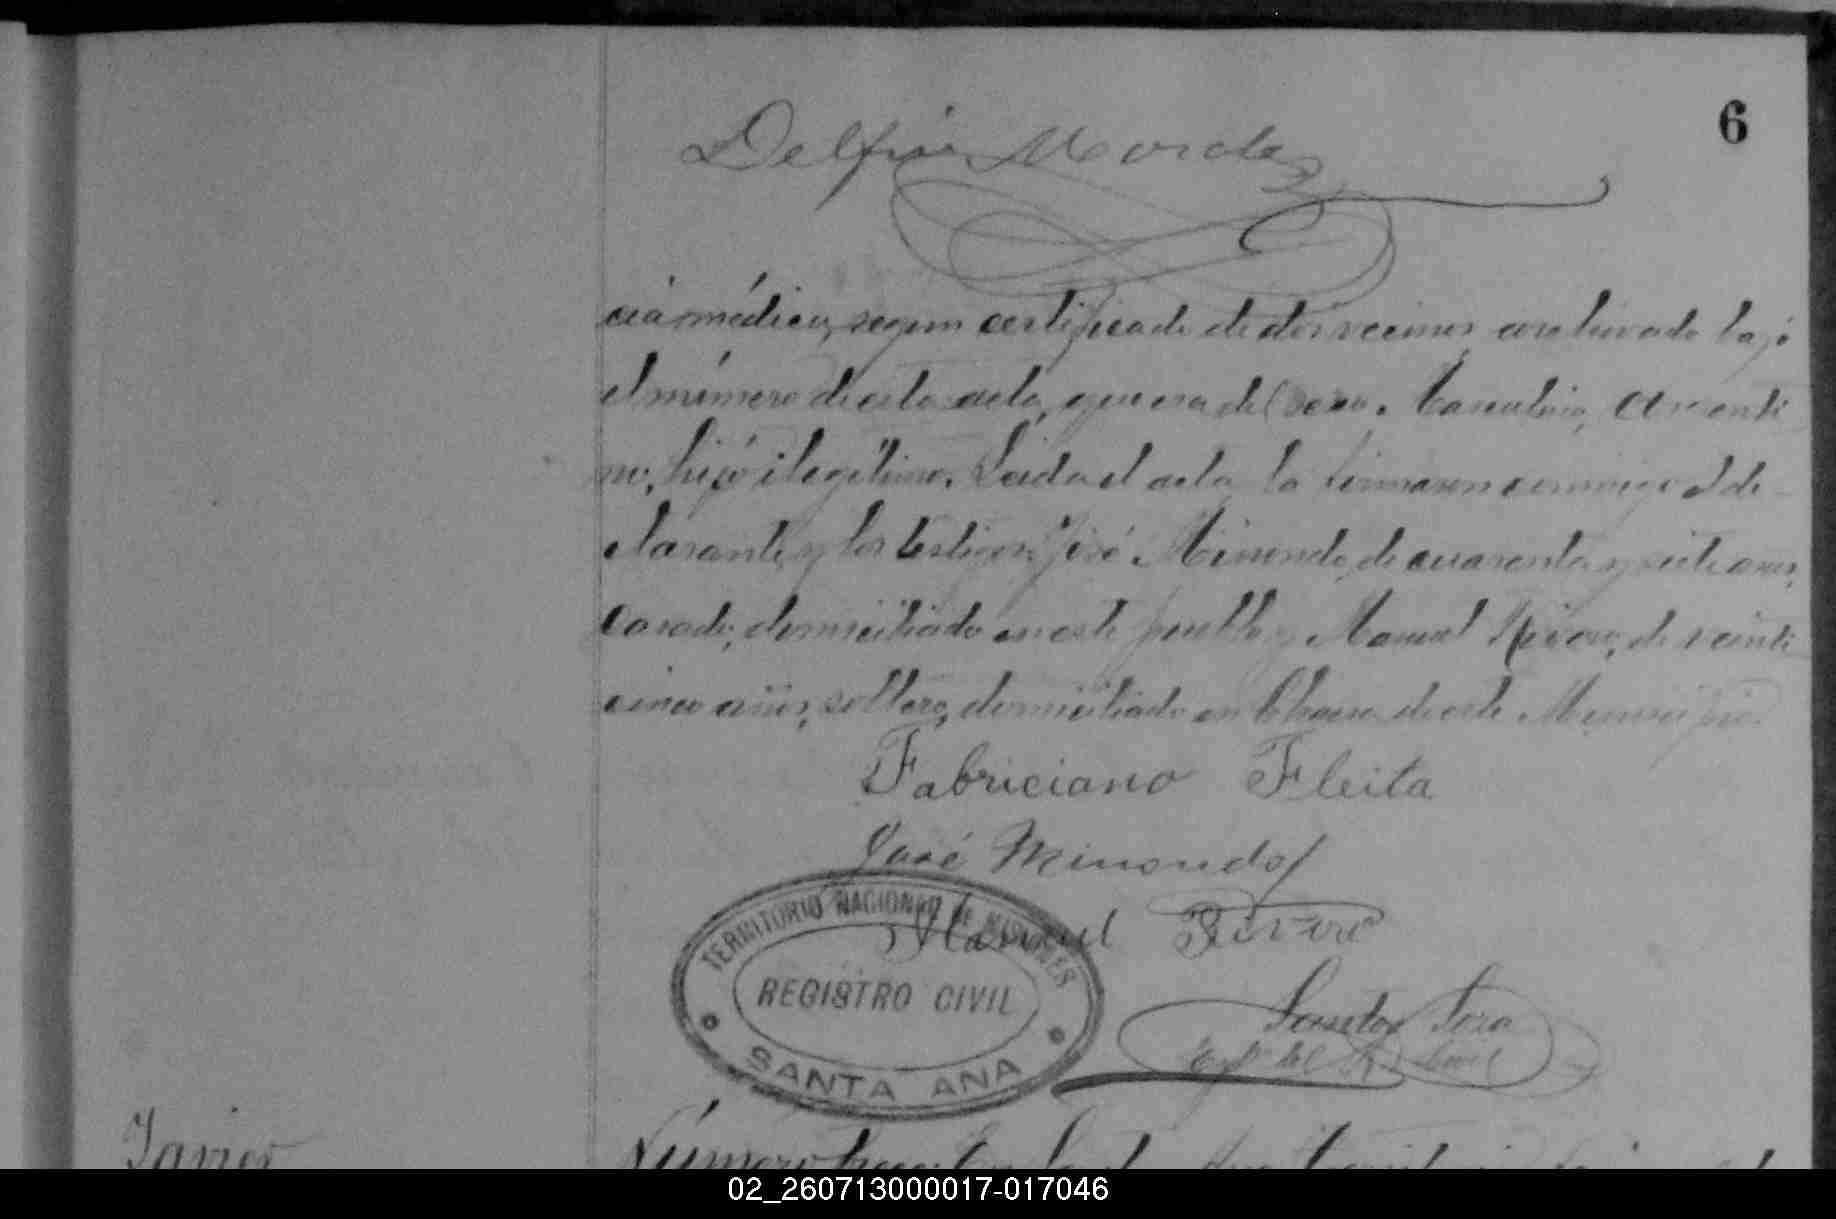 6
Delfín Morales
cia médica, segun certificado de dos vecinos archivado bajo
el número de esta acta, que era del sexo Masculino, Argenti
no, hijo ilegítimo. Leida el acta la firmaron conmigo el de
clarante y los testigos José Minondo, de cuarenta y siete años,
casado, domiciliado en este pueblo y Manuel Rivero, de veinti
cinco años, soltero, domiciliado en Chacra de este Municipio
Fabriciano Fleita
José Minondo
Manuel Rivero
TERRITORIO NACIONAL DE MISIONES
REGISTRO CIVIL
SANTA ANA
Santos
del R. Civil
Javier
Número trece: En Santa Ana Territorio
02_260713000017-017046